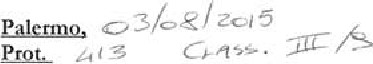 Palermo, 03/08/2015
Prot. 413 CLASS. III/S